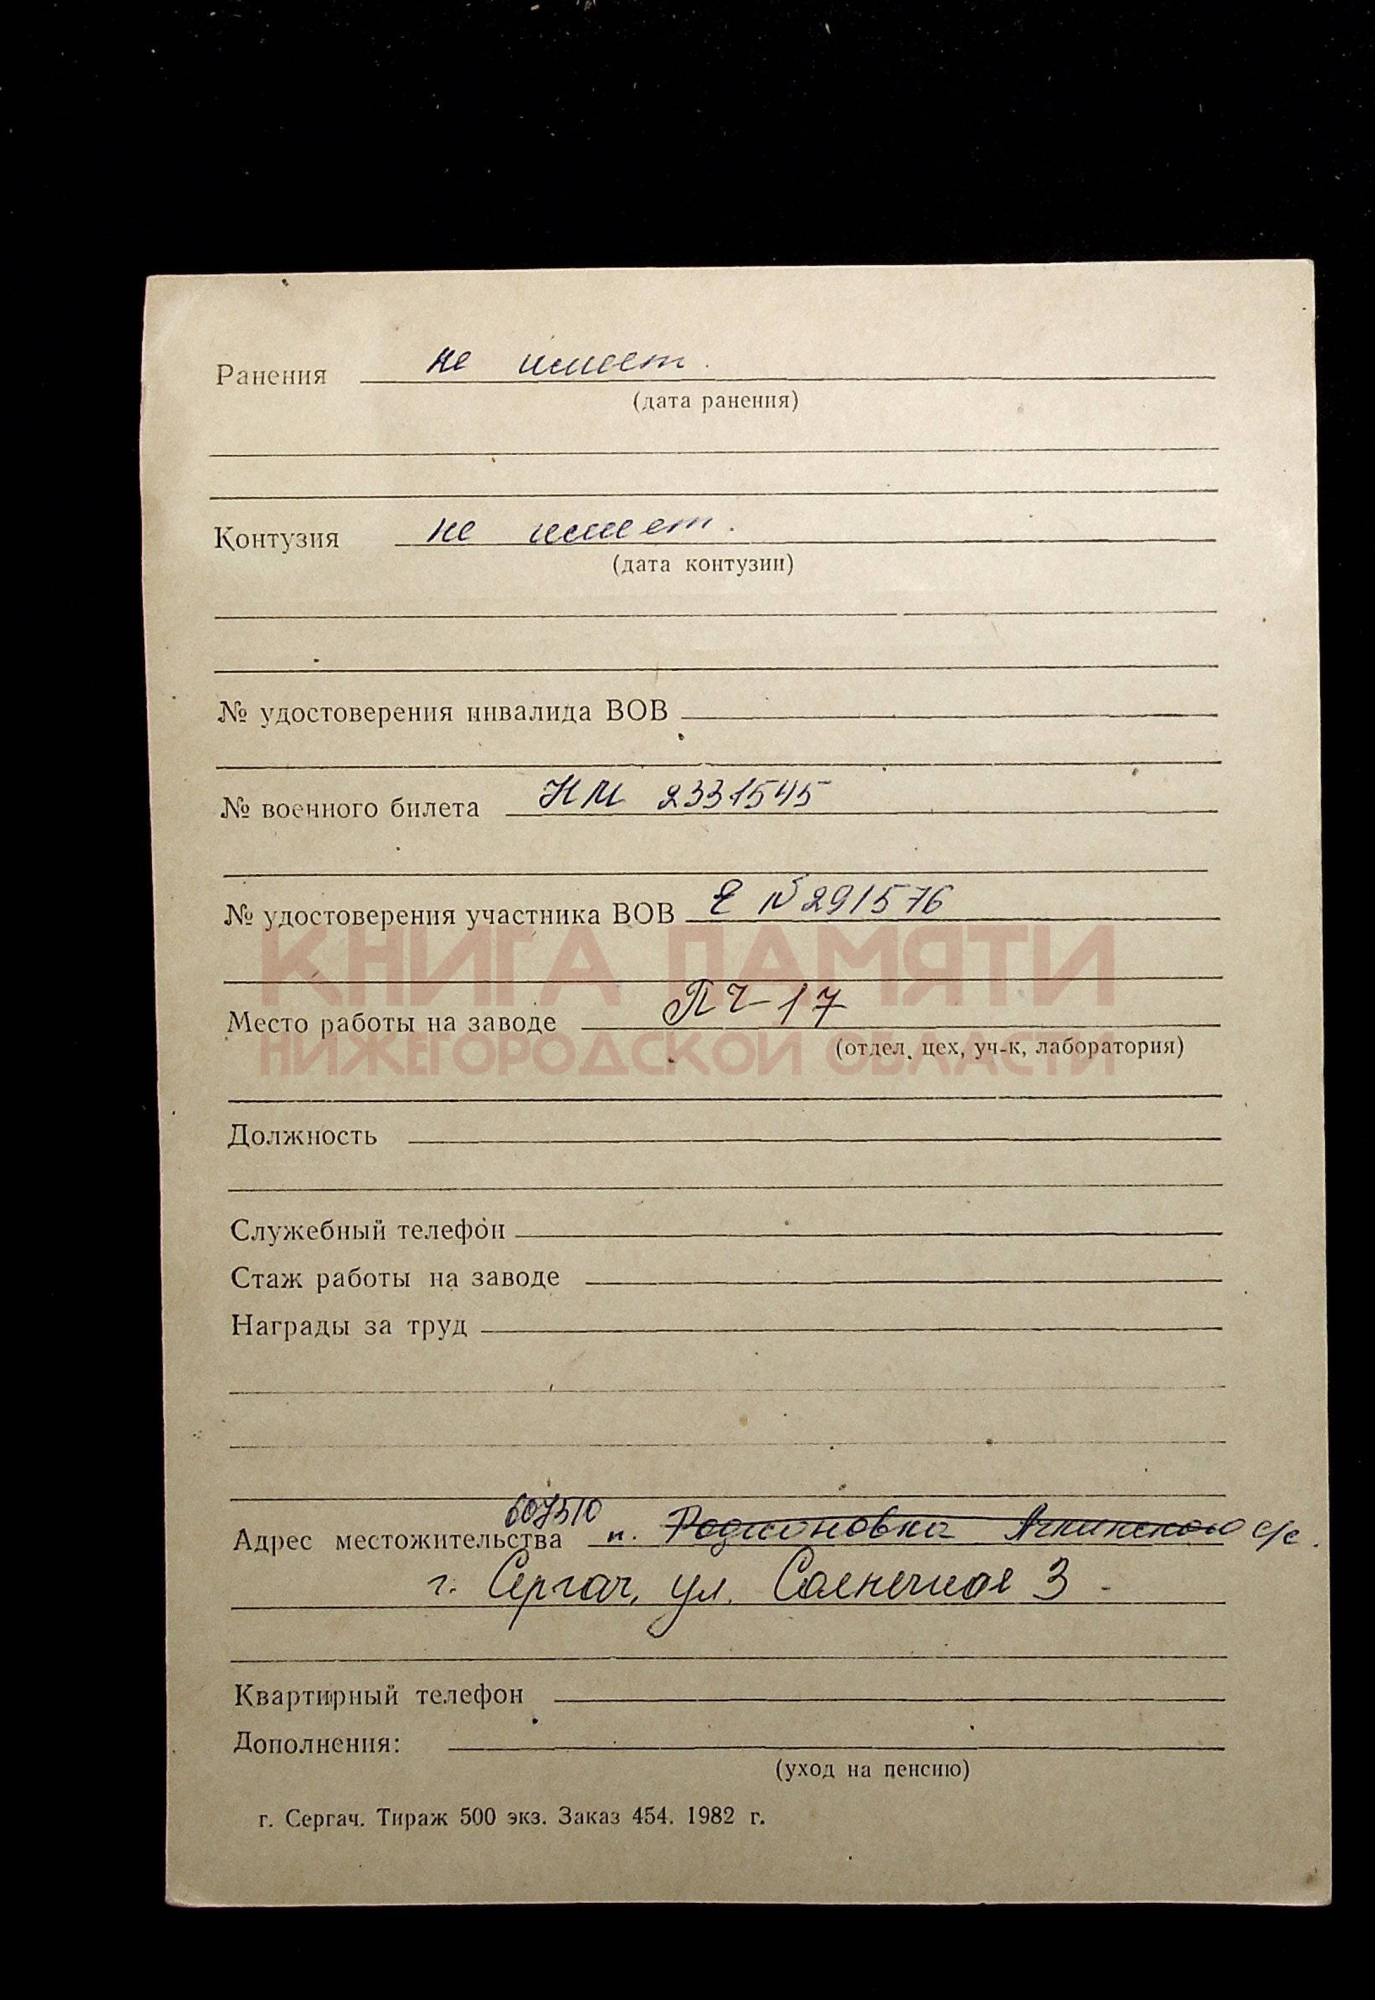 Ранения не имеет.
(дата ранения)
Контузия не имеет.
(дата контузии)
№ удостоверения инвалида ВОВ
№ военного билета НМ 2331545
№ удостоверения участника ВОВ Е № 291576
КНИГА ПАМЯТИ
Место работы на заводе ПЧ-17
НИЖЕГОРОДСКОЙ ОБЛАСТИ
(отдел, цех, уч-к, лаборатория)
Должность
Служебный телефон
Стаж работы на заводе
Награды за труд
607510
Адрес местожительства п. Родионовка с/с.
г. Сергач, ул. Солнечная 3
Квартирный телефон
Дополнения:
(уход на пенсию)
г. Сергач. Тираж 500 экз. Заказ 454. 1982 г.